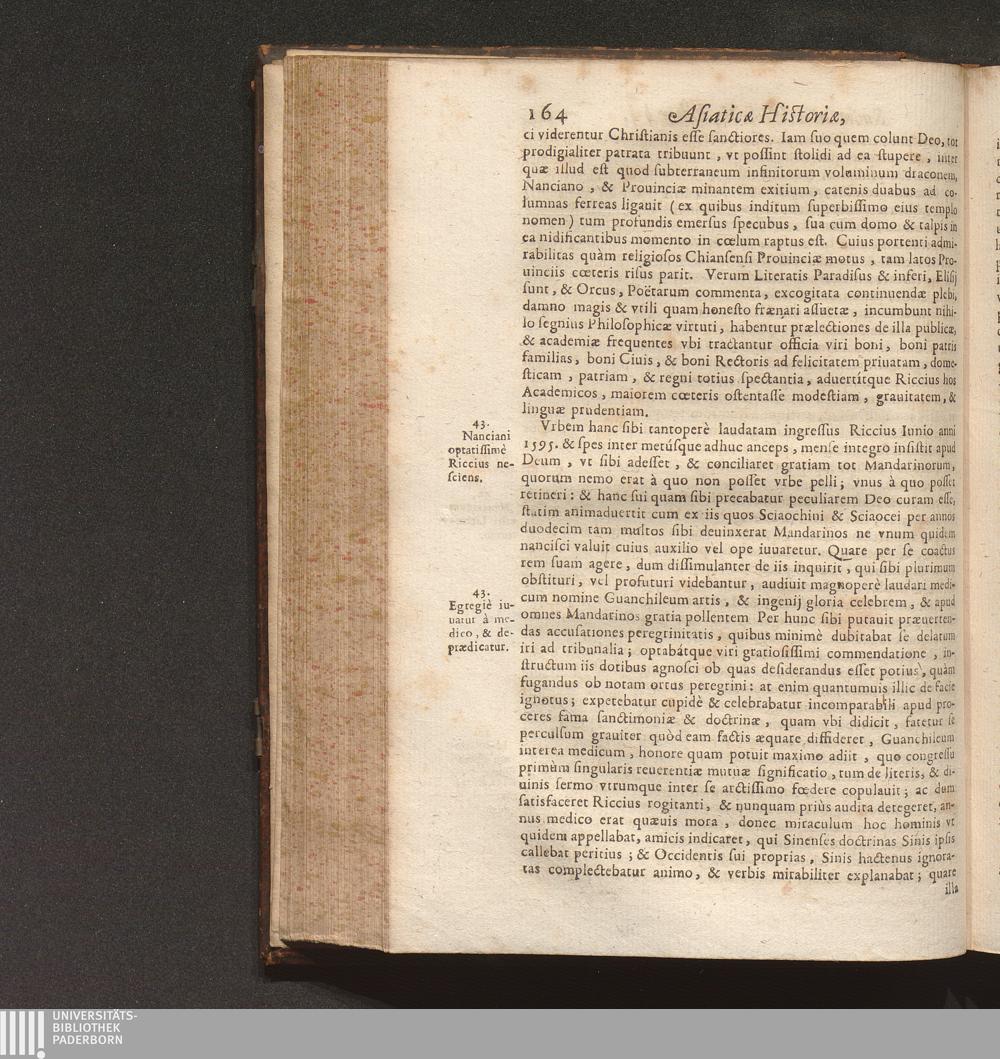 164 Asiaticæ Historiæ,
ci viderentur Christianis esse sanctiores. Iam suo quem colunt Deo, tot
prodigialiter patrata tribuunt, vt possint stolidi ad ea stupere, inter
quæ illud est quod subterraneum infinitorum voluminum draconem,
Nanciano, & Prouinciæ minantem exitium, catenis duabus ad co-
lumnas ferreas ligauit (ex quibus inditum superbissimo eius templo
nomen) tum profundis emersus specubus, sua cum domo & talpis in
ea nidificantibus momento in cœlum raptus est. Cuius portenti admi-
rabilitas quàm religiosos Chiansensi Prouinciæ motus, tam latos Pro-
uinciis cœteris risus parit. Verum Literatis Paradisus & inferi, Elisij
sunt, & Orcus, Poëtarum commenta, excogitata continuendæ plebi,
damno magis & vtili quam honesto frænari assuetæ, incumbunt nihi-
lo segnius Philosophicæ virtuti, habentur prælectiones de illa publicæ,
& academiæ frequentes vbi tractantur officia viri boni, boni patris
familias, boni Ciuis, & boni Rectoris ad felicitatem priuatam, dome-
sticam, patriam, & regni totius spectantia, aduertítque Riccius hos
Academicos, maiorem cœteris ostentasse modestiam, grauitatem, &
linguæ prudentiam.
43.
Nanciani
optatissimè
Riccius ne-
sciens.
Vrbem hanc sibi tantoperè laudatam ingressus Riccius Iunio anni
1595. & spes inter metúsque adhuc anceps, mense integro insistit apud
Deum, vt sibi adesset, & conciliaret gratiam tot Mandarinorum,
quorum nemo erat à quo non posset vrbe pelli; vnus à quo posset
retineri: & hanc sui quam sibi precabatur peculiarem Deo curam esse,
statim animaduertit cum ex iis quos Sciaochini & Sciaocei per annos
duodecim tam multos sibi deuinxerat Mandarinos ne vnum quidem
nancisci valuit cuius auxilio vel ope iuuaretur. Quare per se coactus
rem suam agere, dum dissimulanter de iis inquirit, qui sibi plurimum
obstituri, vel profuturi videbantur, audiuit magnoperè laudari medi-
43.
Egregiè iu-
uatur à me-
dico, & de-
prædicatur.
cum nomine Guanchileum artis, & ingenij gloria celebrem, & apud
omnes Mandarinos gratia pollentem Per hunc sibi putauit præuerten-
das accusationes peregrinitatis, quibus minimè dubitabat se delatum
iri ad tribunalia; optabátque viri gratiosissimi commendatione, in-
structum iis dotibus agnosci ob quas desiderandus esset potius, quàm
fugandus ob notam ortus peregrini: at enim quantumuis illic de facie
ignotus; expetebatur cupidè & celebrabatur incomparabili apud pro-
ceres fama sanctimoniæ & doctrinæ, quam vbi didicit, fatetur se
perculsum grauiter quòd eam factis æquare diffideret, Guanchileum
interea medicum, honore quam potuit maximo adiit, quo congressu
primùm singularis reuerentiæ mutuæ significatio, tum de literis, & di-
uinis sermo vtrumque inter se arctissimo fœdere copulauit; ac dum
satisfaceret Riccius rogitanti, & nunquam priùs audita detegeret, an-
nus medico erat quæuis mora, donec miraculum hoc hominis vt
quidem appellabat, amicis indicaret, qui Sinenses doctrinas Sinis ipsis
callebat peritius; & Occidentis sui proprias, Sinis hactenus ignora-
tas complectebatur animo, & verbis mirabiliter explanabat; quare
illa
UNIVERSITÄTS-
BIBLIOTHEK
PADERBORN